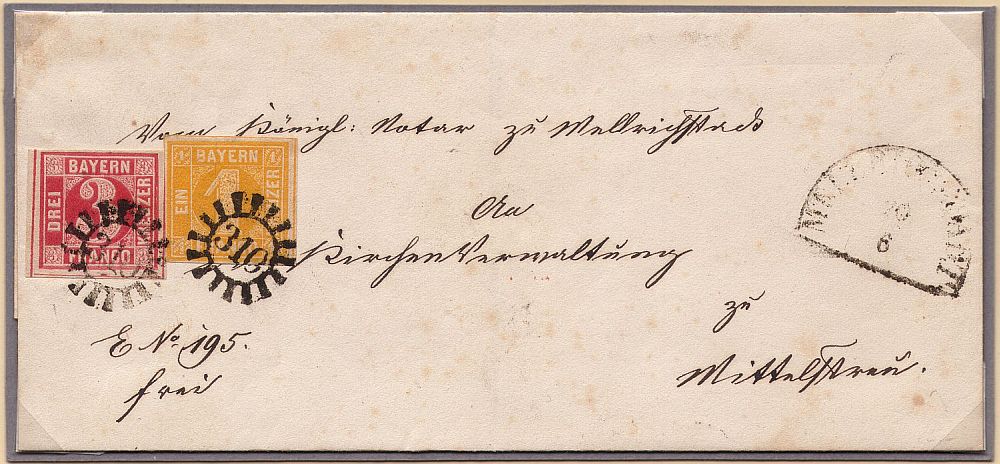 Vom Königl: Notar zu Mellrichstadt
BAYERN
DREI
3
KREUZER
BAYERN
EIN
1
KREUZER
310
An
Kirchenverwaltung
zu
Mittelstreu.
E No. 195.
frei
6